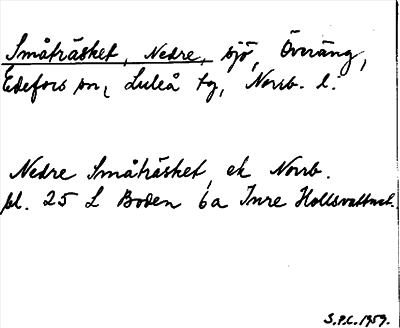 Småträsket, Nedre, sjö, Överäng,
Edefors sn, Luleå tg, Norrb. l.
Nedre Småträsket, ek Norrb.
bl. 25 L Boden 6a Inre Hollsvattnet.
S.P.C. 1959.